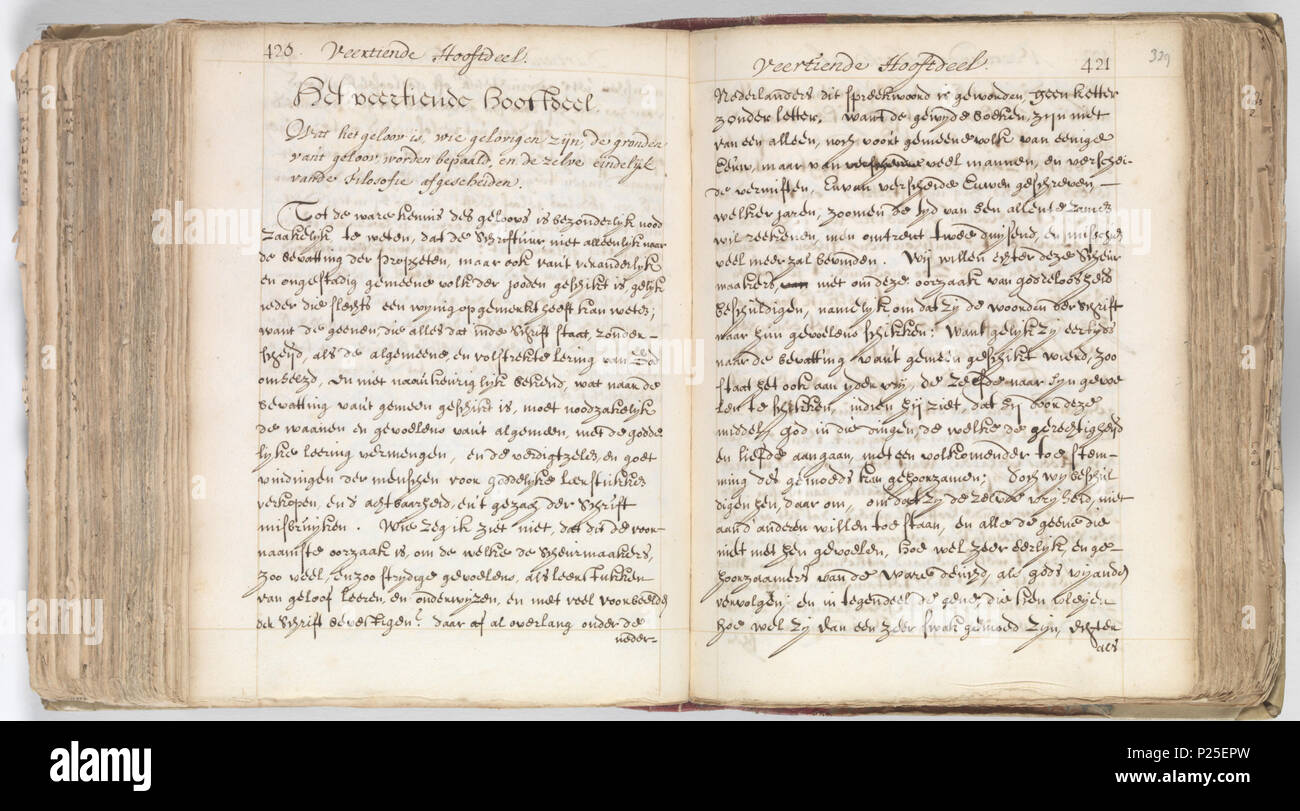 420. Veertiende Hooftdeel.
Het veertiende Hooftdeel.
Wat het geloof is, wie gelovigen zijn, de gronden
van't geloof worden bepaald, en de zelve eindelijk
vande Filosofie afgescheiden.
Tot de ware kennis des geloofs is bezonderlyk nood
zaakelijk te weten, dat de Schriftuur niet alleenlijk naar
de bevatting der Propheten, maar ook van't veranderlijk
en ongestadig gemeene volk der jooden geschikt is, gelijk
ieder die slechts een wynig opgemerkt heeft kan weten;
want de geenen die alles dat inde Schrift staat, zonder-
scheijd, als de algemeene en volstrekte lering van God
ombelzd, en niet naaukeuriglijk bekend, wat naar de
bevatting van't gemeen geschikt is, moet noodzakelijk
de waanen en gevoelens van't algemeen, met de godde
lyke leering vermengen, en de verdigtzelen en goet
vindingen der menschen voor goddelyke leerstukken
verkopen, en d'achtbaarheid, en't gezach der Schrift
misbruijken. Wie zeg ik ziet niet, dat dit de voor-
naamste oorzaak is, om de welke de scheurmaakers,
zoo veel, en zoo strydige gevoelens, als leerstukken
van geloof leeren, en onderwijzen, en met veel voorbeelden
der Schrift bevestigen? daar af al overlang onder de
neder-
Veertiende Hooftdeel. 421
329
Nederlanders dit spreekwoord is geworden, geen ketter
zonder letter. want de gewyde boeken, zyn niet
van een alleen, noch voor't gemeene volk van eenige
Eeuw, maar van verscheide veel mannen, en verschei-
de vernuften, en van verscheide Euwen geschreven
welker jaren, zoo men de tyd van hen allen te zamen
wil reekenen, men omtrent twee duijsend, en misschien
veel meer zal bevinden. Wij willen echter deze scheur
maakers van niet om deze oorzaak van godtloosheid
beschuldigen, namelyk om dat zy de woorden der Schrift
naar hun gevoelens schikken: Want gelyk zy eertyds
naar de bevatting van't gemeen geschikt wierd, zoo
staat het ook aan yder vry, de zelfde naar zyn gevoe
len te schikken, indien hij ziet, dat hij door deze
middel, God in die dingen, de welke de gerechtigheijd
en liefde aangaan, met een volkomender toestem-
ming des gemoeds kan gehoorzamen; doch wy beschul
digen hen, daar om, om dat zy de zelvde vryheid, niet
aan d'anderen willen toestaan, en alle de geene die
niet met hen gevoelen, hoe wel zeer eerlyk, en ge-
hoorzaamers van de ware deugd, als gods vyanden
vervolgen; en in tegendeel de gene, die hen vleijen
hoe wel zy van een zeer swak gemoed zyn, echter
als